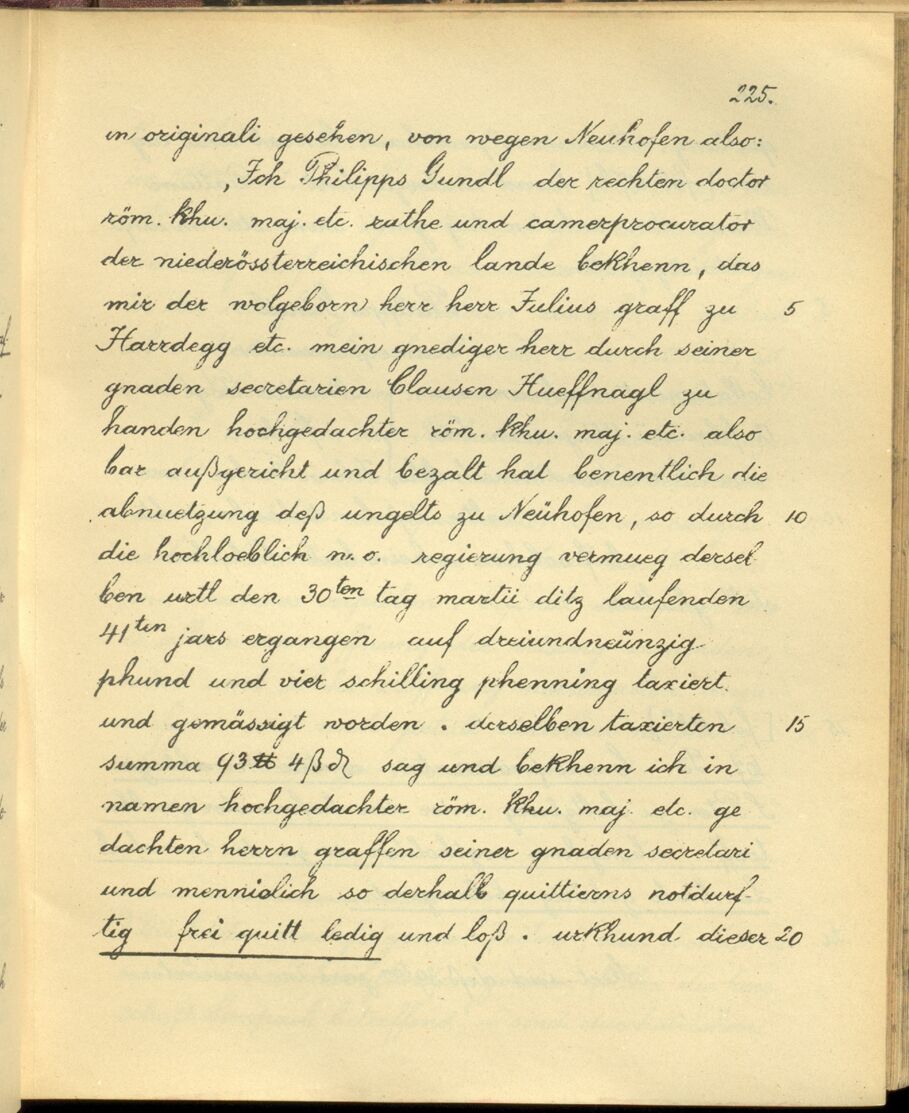 225.
in originali gesehen, von wegen Neuhofen also:
„Ich Philipps Gundl der rechten doctor
röm. khu. maj. etc. rathe und camerprocurator
der niederössterreichischen lande bekhenn, das
mir der wolgeborn herr herr Julius graff zu 5
Harrdegg etc. mein gnediger herr durch seiner
gnaden secretarien Clausen Hueffnagl zu
handen hochgedachter röm. khu. maj. etc. also
bar außgericht und bezalt hat benentlich die
abnuetzung deß ungelts zu Neühofen, so durch 10
die hochloeblich n. o. regierung vermueg dersel
ben urtl den 30ten tag martii ditz laufenden
41ten jars ergangen auf dreiundneünzig
phund und vier schilling phenning taxiert.
und gemässigt worden. derselben taxierten 15
summa 93 ℔ 4 ß ₰ sag und bekhenn ich in
namen hochgedachter röm. khu. maj. etc. ge
dachten herrn graffen seiner gnaden secretari
und menniglich so derhalb quittierns notdurf-
tig frei quitt ledig und loß. urkhund dieser 20